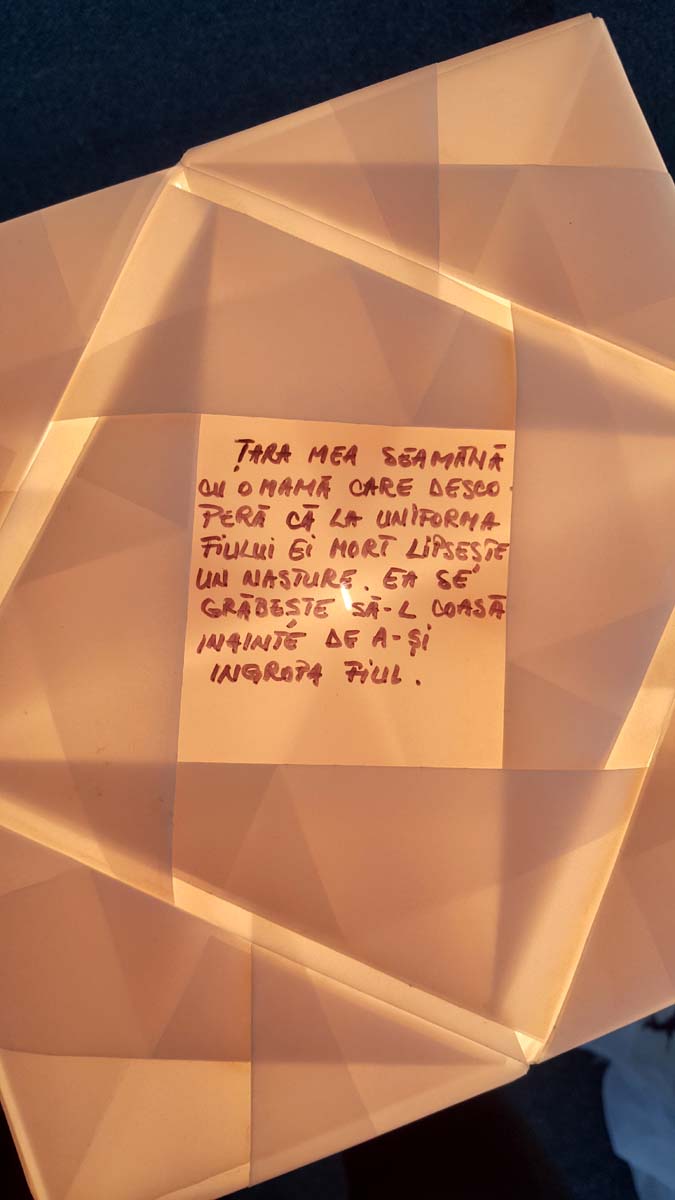 ȚARA MEA SEAMĂNĂ
CU O MAMĂ CARE DESCO-
PERĂ CĂ LA UNIFORMA
FIULUI EI MORT LIPSEȘTE
UN NASTURE. EA SE
GRĂBEȘTE SĂ-L COASĂ
INAINTE DE A-ȘI
INGROPA FIUL.